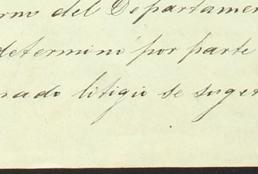 del Departamen
determinó por parte
nado litigio se suger